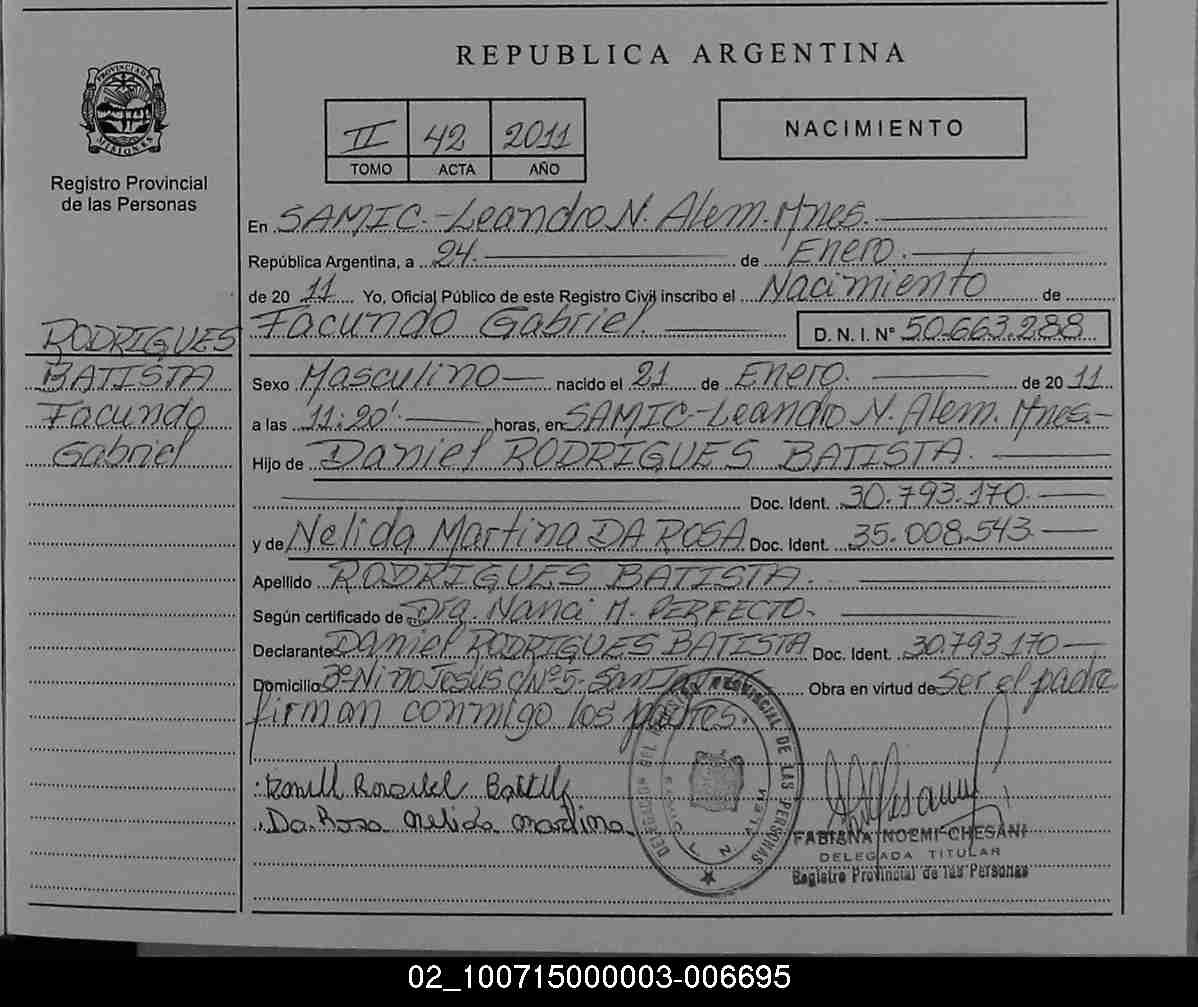 REPUBLICA ARGENTINA
PROVINCIA DE MISIONES
Registro Provincial
de las Personas
II 42 2011
TOMO ACTA AÑO
NACIMIENTO
En SAMIC.-Leandro N. Alem. Mnes.
República Argentina, a 24. de Enero.
de 20 11 Yo, Oficial Público de este Registro Civil inscribo el Nacimiento de
Facundo Gabriel. D. N. I. Nº 50.663.288
RODRIGUES
BATISTA
Facundo
Gabriel
Sexo Masculino nacido el 21 de Enero. de 20 11
a las 11:20' horas, en SAMIC-Leandro N. Alem. Mnes.-
Hijo de Daniel RODRIGUES BATISTA.
Doc. Ident. 30.793.170.
y de Nelida Martina DA ROSA Doc. Ident. 35.008.543.
Apellido RODRIGUES BATISTA.
Según certificado de Dra. Nanci M. PERFECTO-
Declarante Daniel RODRIGUES BATISTA Doc. Ident. 30.793.170
Domicilio Bº Niño Jesús C/Nº5- Obra en virtud de Ser el padre
firman conmigo los padres.
Da Rosa nelida martina
DEL REGISTRO PROVINCIAL DE LAS PERSONAS
FABIANA NOEMI CHESANI
DELEGADA TITULAR
Registro Provincial de las Personas
02_100715000003-006695